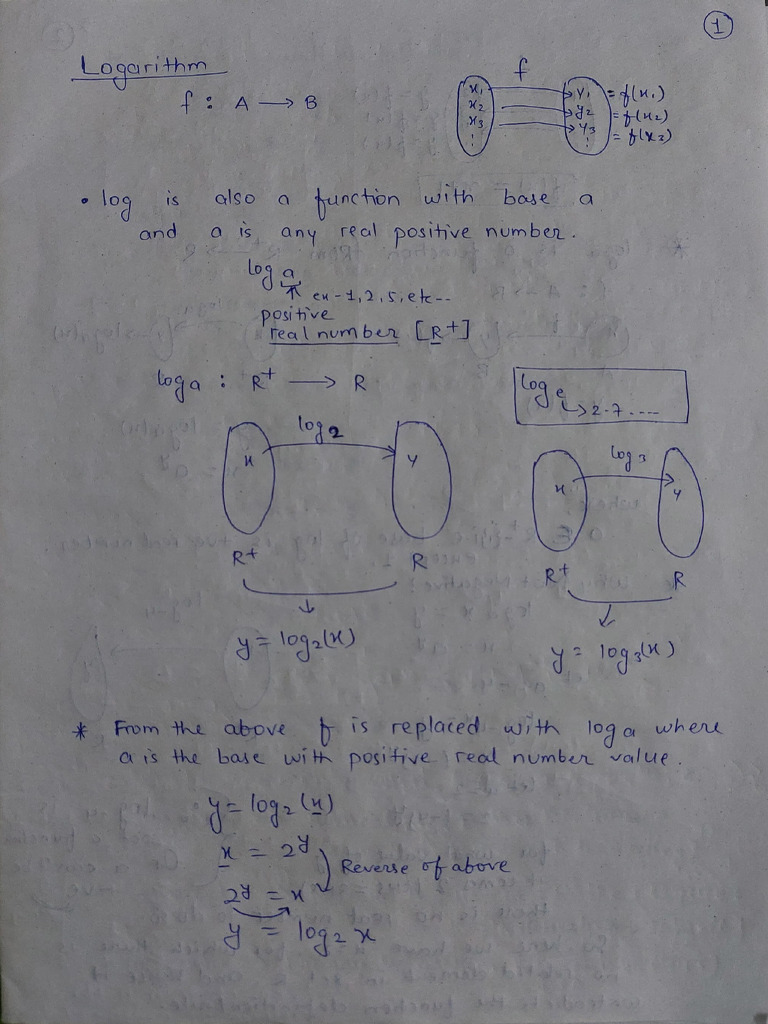 1
Logarithm
f : A → B
f
x1 y1 = f(x1)
x2 y2 = f(x2)
x3 y3 = f(x3)
• log is also a function with base a
and a is any real positive number.
log a
ex - 1, 2, 5, etc--
positive
real number [R+]
log a : R+ → R
log e
↳ 2.7....
log 2
x y
R+ R
y = log2(x)
log 3
x y
R+ R
y = log3(x)
* From the above f is replaced with log a where
a is the base with positive real number value.
y = log2(x)
x = 2^y
Reverse of above
2^y = x
y = log2 x